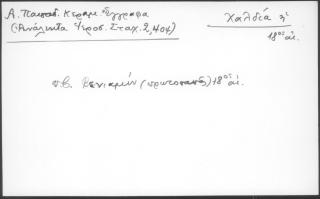 Α. Παπαδ. Κεραμ. Ἔγγραφα
(Ἀνάλεκτα Ἱεροσ. Σταχ. 2, 404)
Χαλδία
18ος αἰ.
π.β. Βενιαμίν (πρωτοπαπᾶς) 18ος αἰ.